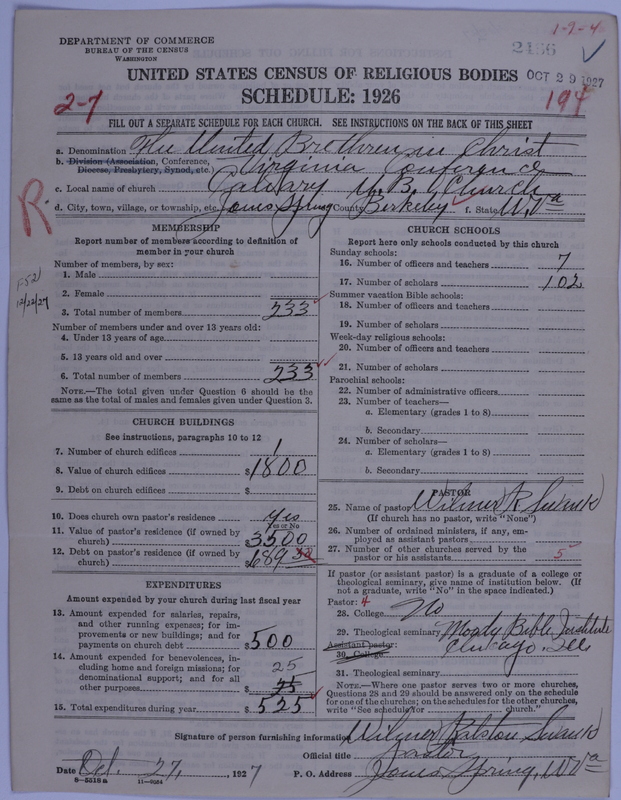 1-9-4
DEPARTMENT OF COMMERCE
BUREAU OF THE CENSUS
WASHINGTON
2456
UNITED STATES CENSUS OF RELIGIOUS BODIES
OCT 29 1927
SCHEDULE: 1926
2-7
194
FILL OUT A SEPARATE SCHEDULE FOR EACH CHURCH. SEE INSTRUCTIONS ON THE BACK OF THIS SHEET
a. Denomination The United Brethren in Christ
b. Division (Association, Conference, Diocese, Presbytery, Synod, etc.) Virginia Conference
c. Local name of church Calvary U.B. Church
d. City, town, village, or township, etc. Jones Spring County Berkeley f. State W.Va
R
MEMBERSHIP
Report number of members according to definition of
member in your church
Number of members, by sex:
1. Male
2. Female
3. Total number of members 233
Number of members under and over 13 years old:
4. Under 13 years of age
5. 13 years old and over
6. Total number of members 233
NOTE.—The total given under Question 6 should be
same as the total of males and females given under Question 3.
12/22/27
CHURCH BUILDINGS
See instructions, paragraphs 10 to 12
7. Number of church edifices 1
8. Value of church edifices $1800
9. Debt on church edifices $
10. Does church own pastor's residence yes
Yes or No
11. Value of pastor's residence (if owned by
church) $3500
12. Debt on pastor's residence (if owned by
church) $689
EXPENDITURES
Amount expended by your church during last fiscal year
13. Amount expended for salaries, repairs,
and other running expenses; for im-
provements or new buildings; and for
payments on church debt $500
14. Amount expended for benevolences, in-
cluding home and foreign missions; for 25
denominational support; and for all
other purposes $ 25
15. Total expenditures during year $ 525
CHURCH SCHOOLS
Report here only schools conducted by this church
Sunday schools:
16. Number of officers and teachers 7
17. Number of scholars 102
Summer vacation Bible schools:
18. Number of officers and teachers
19. Number of scholars
Week-day religious schools:
20. Number of officers and teachers
21. Number of scholars
Parochial schools:
22. Number of administrative officers
23. Number of teachers—
a. Elementary (grades 1 to 8)
b. Secondary
24. Number of scholars—
a. Elementary (grades 1 to 8)
b. Secondary
PASTOR
25. Name of pastor Wilmer R. Swank
(If church has no pastor, write "None")
26. Number of ordained ministers, if any, em-
ployed as assistant pastors
27. Number of other churches served by the
pastor or his assistants 5
If pastor (or assistant pastor) is a graduate of a college or
theological seminary, give name of institution below. (If
not a graduate, write "No" in the space indicated.)
Pastor: 4
28. College No
29. Theological seminary Moody Bible Institute
Assistant pastor: Chicago, Ill
30. College
31. Theological seminary
NOTE.—Where one pastor serves two or more churches,
Questions 28 and 29 should be answered only on the schedule
for one of the churches; on the schedules for the other churches,
write "See schedule for church."
Signature of person furnishing information Wilmer Ralston Swank
Official title Pastor
Date Oct. 27, 1927 P. O. Address Jones Spring, W.Va
8-5518a 11-9264